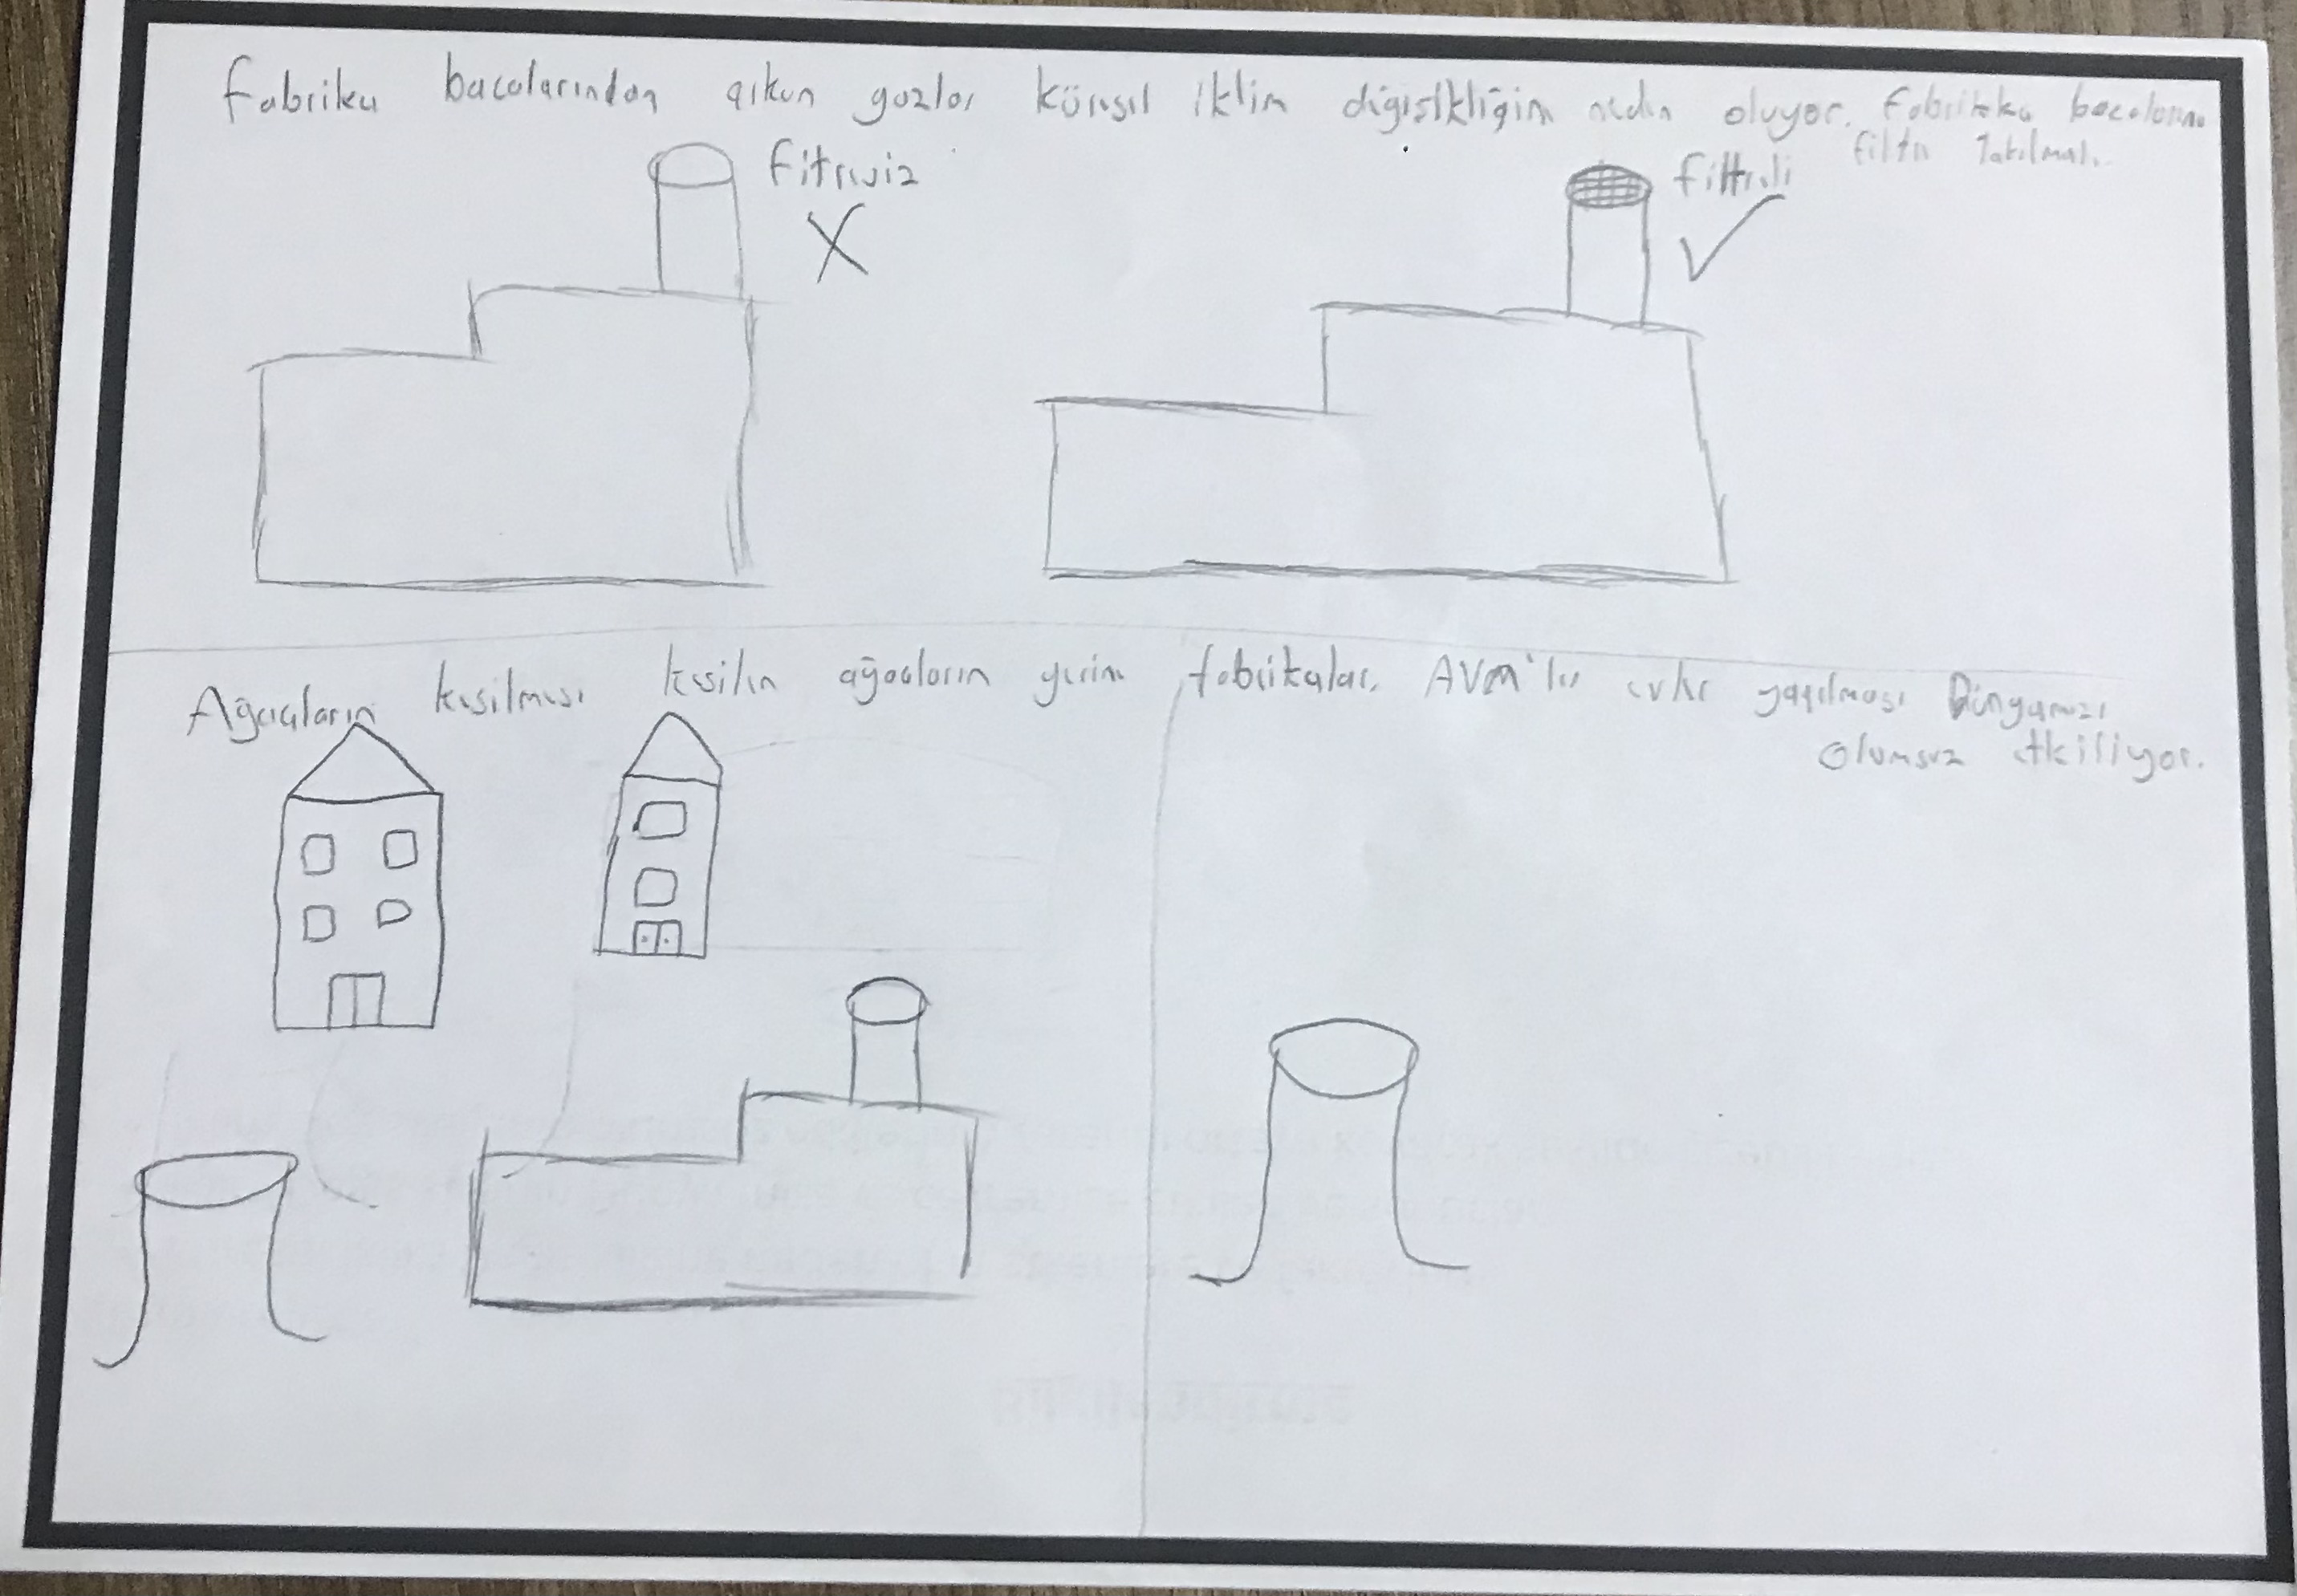 Fabrika bacalarından çıkan gazlar küresel iklim değişikliğine neden oluyor. Fabrikka bacalarına
filtre takılmalı.
Fitresiz
Filtreli
Ağaçların kesilmesi kesilen ağaçların yerine fabrikalar, AVM'ler evler yapılması Dünyamızı
olumsuz etkiliyor.